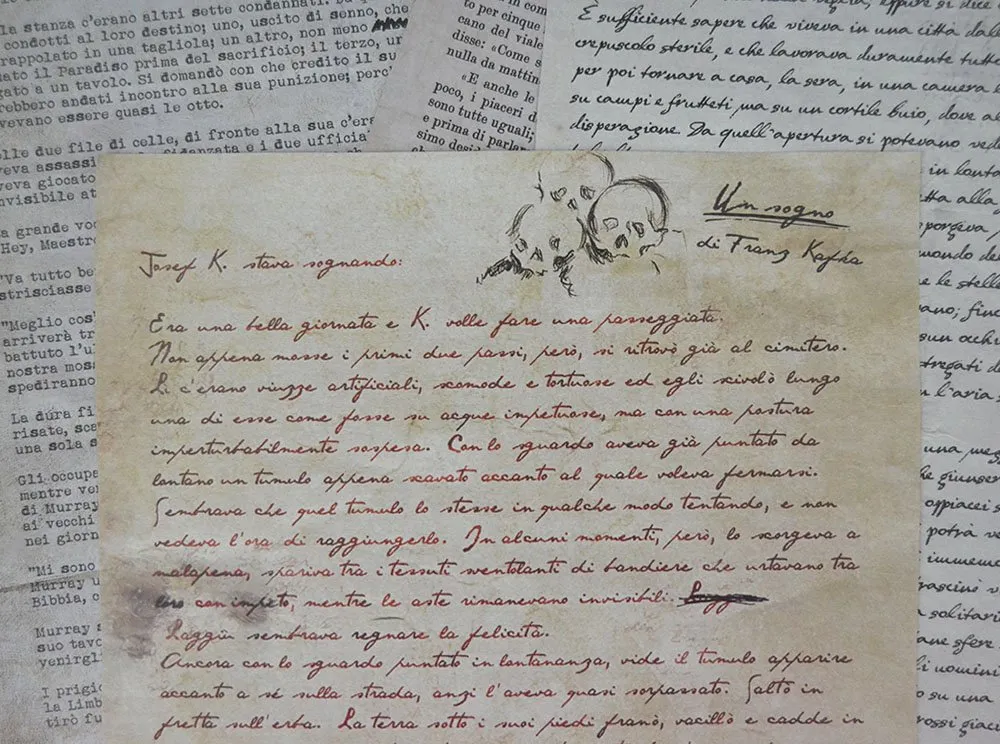 la stanza c'erano altri sette condannati.
condotti al loro destino; uno, uscito di senno, che
rappolato in una tagliola; un altro, non meno
ato il Paradiso prima del sacrificio; il terzo, ur
gato a un tavolo. Si domandò con che credito il su
rebbero andati incontro alla sua punizione; perc'
vevano essere quasi le otto.
lle due file di celle, di fronte alla sua c'era
veva assassi
fidanzata e i due ufficia
veva giocato
nvisibile at
a grande voc
Hey, Maestro
"Va tutto be
strisciasse
"Meglio cos
arriverà tr
battuto l'u
nostra mos
spediranno
La dura fi
risate, sca
una sola s
Gli occupa
mentre ve
di Murray
ai vecchi
nei giorn
"Mi sono
Murray u
Bibbia, c
Murray s
suo tavo
venirgl
I prigio
la Limb
tirò fu
in com
to per cinque
cano del viale
disse: «Come s
nulla da mattin
«E anche le
poco, i piaceri d
sono tutte uguali;
e prima di parlar
simo desid
È sufficiente sapere che viveva in una città dal
crepuscolo sterile, e che lavorava duramente tutto
per poi tornare a casa, la sera, in una camera
su campi e frutteti ma su un cortile buio, dove a
disperazione. Da quell'apertura si potevano ved
in lonta
tta alla
porgeva
ando de
e le stelle
ano; fino
sun occhi
stregati d
n l'aria s
una meg
he giunser
oppiacei s
potrà v
immem
rascino v
solitari
ane sfer
li uomini
o su una
rossi giac
Un sogno
di Franz Kafka
Josef K. stava sognando:
Era una bella giornata e K. volle fare una passeggiata.
Non appena mosse i primi due passi, però, si ritrovò già al cimitero.
Lì c'erano viuzze artificiali, scomode e tortuose ed egli scivolò lungo
una di esse come fosse su acque impetuose, ma con una postura
imperturbabilmente sospesa. Con lo sguardo aveva già puntato da
lontano un tumulo appena scavato accanto al quale voleva fermarsi.
Sembrava che quel tumulo lo stesse in qualche modo tentando, e non
vedeva l'ora di raggiungerlo. In alcuni momenti, però, lo scorgeva a
malapena, spariva tra i tessuti sventolanti di bandiere che urtavano tra
loro con impeto, mentre le aste rimanevano invisibili.
Laggiù sembrava regnare la felicità.
Ancora con lo sguardo puntato in lontananza, vide il tumulo apparire
accanto a sé sulla strada, anzi l'aveva quasi sorpassato. Saltò in
fretta sull'erba. La terra sotto i suoi piedi franò, vacillò e cadde in